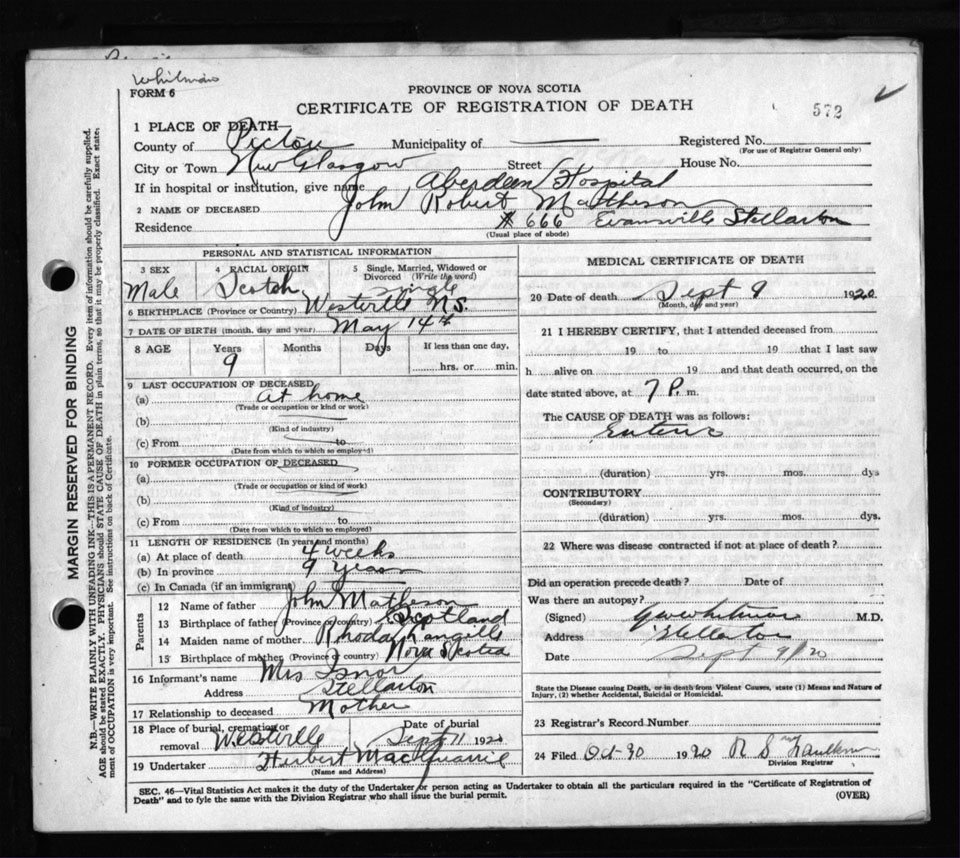 Whitman
FORM 6
PROVINCE OF NOVA SCOTIA
CERTIFICATE OF REGISTRATION OF DEATH
572
1 PLACE OF DEATH—
County of Pictou Municipality of Registered No.
(For use of Registrar General only)
City or Town New Glasgow Street House No.
If in hospital or institution, give name Aberdeen Hospital
2 NAME OF DECEASED John Robert Matheson
Residence # 666 Evansville Stellarton
(Usual place of abode)
PERSONAL AND STATISTICAL INFORMATION
3 SEX 4 RACIAL ORIGIN 5 Single, Married, Widowed or Divorced (Write the word)
Male Scotch Single
6 BIRTHPLACE (Province or Country) Westville N.S.
7 DATE OF BIRTH (month, day and year) May 14th
8 AGE Years Months Days If less than one day,
9 hrs. or min.
9 LAST OCCUPATION OF DECEASED
(a) At home
(Trade or occupation or kind or work)
(b)
(Kind of industry)
(c) From to
(Date from which to which so employed)
10 FORMER OCCUPATION OF DECEASED
(a)
(Trade or occupation or kind of work)
(b)
(Kind of industry)
(c) From to
(Date from which to which so employed)
11 LENGTH OF RESIDENCE (In years and months)
(a) At place of death 4 weeks
(b) In province 9 Years
(c) In Canada (if an immigrant)
Parents
12 Name of father John Matheson
13 Birthplace of father (Province or country) Scotland
14 Maiden name of mother Rhoda Langille
15 Birthplace of mother (Province or country) Nova Scotia
16 Informant's name Mrs
Address Stellarton
17 Relationship to deceased Mother
18 Place of burial, cremation or removal Westville Date of burial Sept 11 1920
19 Undertaker Herbert MacQuarrie
(Name and Address)
MEDICAL CERTIFICATE OF DEATH
20 Date of death Sept 9 1920
(Month, day and year)
21 I HEREBY CERTIFY, that I attended deceased from
19 to 19 that I last saw
h alive on 19 and that death occurred, on the
date stated above, at 7 P. m.
The CAUSE OF DEATH was as follows:
(duration) yrs. mos. dys
CONTRIBUTORY
(Secondary)
(duration) yrs. mos. dys.
22 Where was disease contracted if not at place of death?
Did an operation precede death? Date of
Was there an autopsy?
(Signed) Whitman M.D.
Address Stellarton
Date Sept 9/20
State the Disease causing Death, or in death from Violent Causes, state (1) Means and Nature of
Injury, (2) whether Accidental, Suicidal or Homicidal.
23 Registrar's Record Number
24 Filed Oct 30 1920
Division Registrar
SEC. 46—Vital Statistics Act makes it the duty of the Undertaker or person acting as Undertaker to obtain all the particulars required in the "Certificate of Registration of
Death" and to fyle the same with the Division Registrar who shall issue the burial permit.
(OVER)
MARGIN RESERVED FOR BINDING
N.B.—WRITE PLAINLY WITH UNFADING INK—THIS IS A PERMANENT RECORD. Every item of information should be carefully supplied.
AGE should be stated EXACTLY. PHYSICIANS should STATE CAUSE OF DEATH in plain terms, so that it may be properly classified. Exact state-
ment of OCCUPATION is very important. See instructions on back of Certificate.